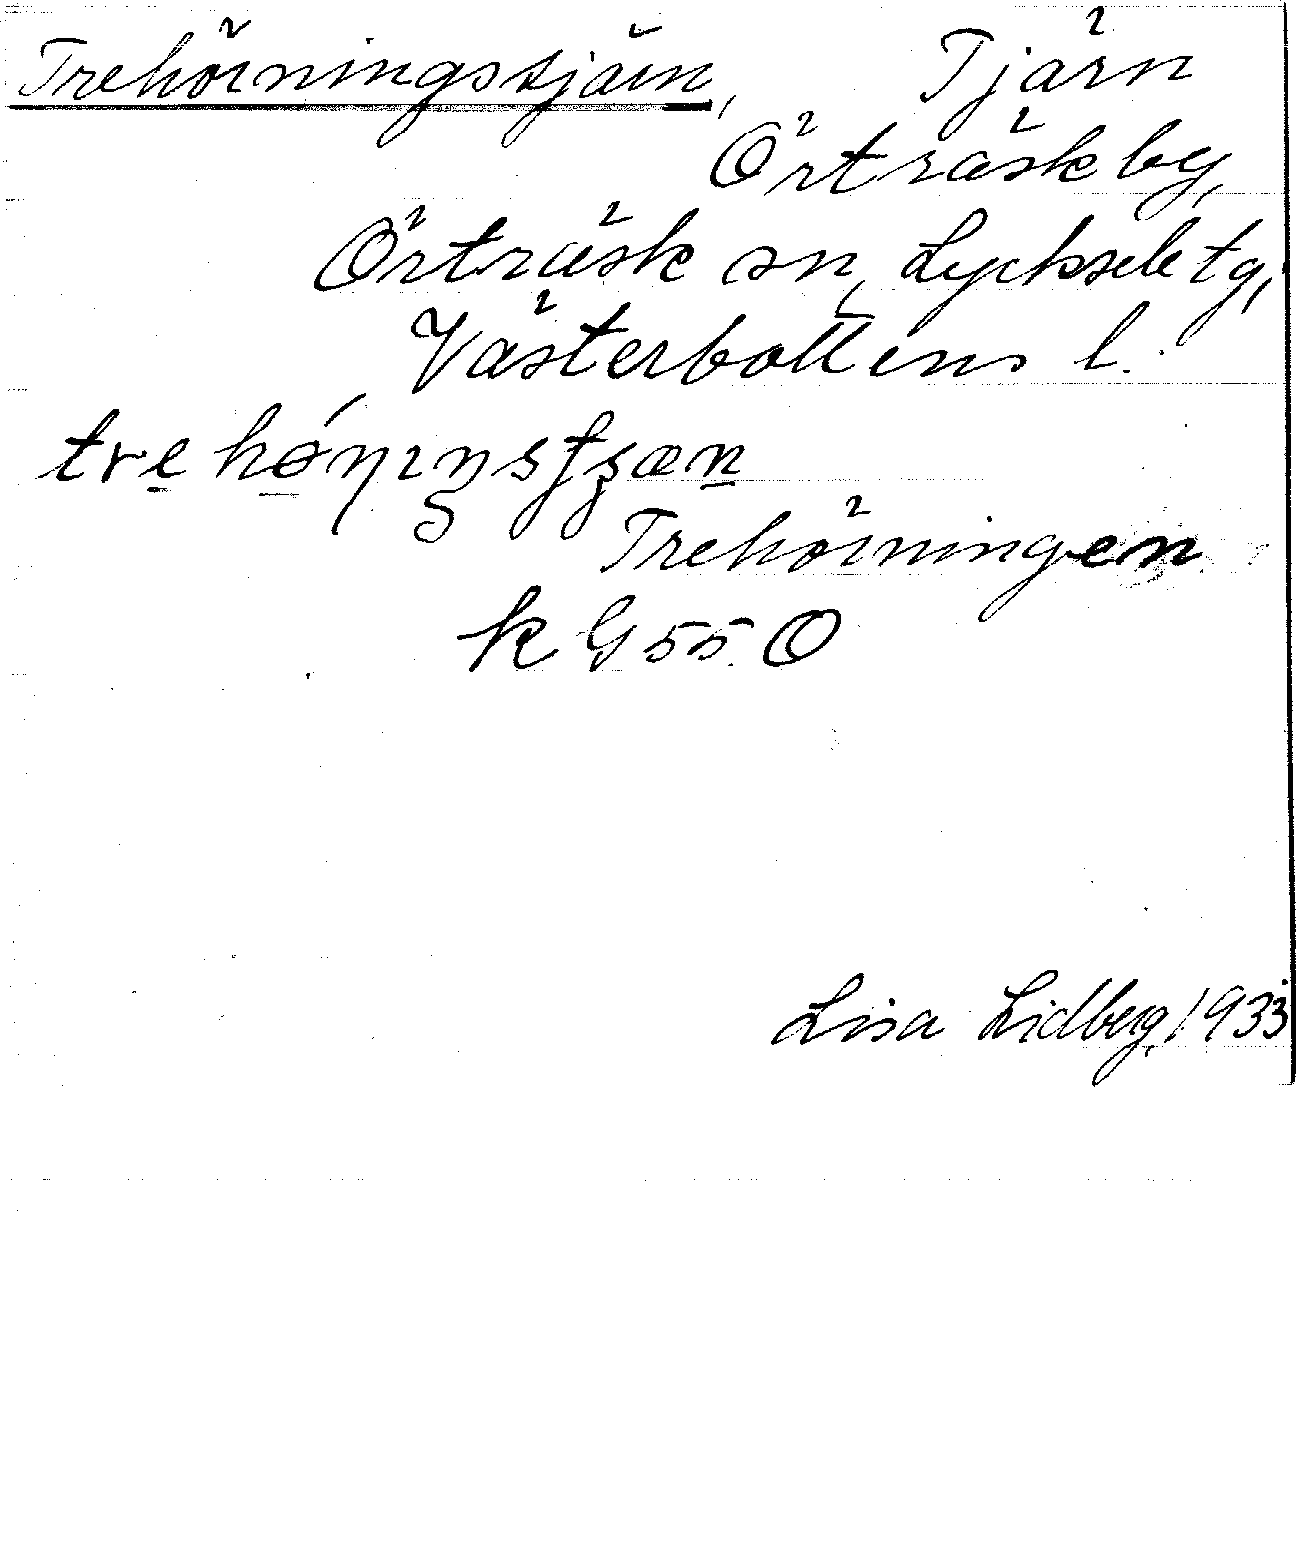 Trehörningstjärn, Tjärn
Örträsk by,
Örträsk sn, Lycksele tg,
Västerbottens l.
Trehörningen
k G 55 O
Lisa Lidberg 1933